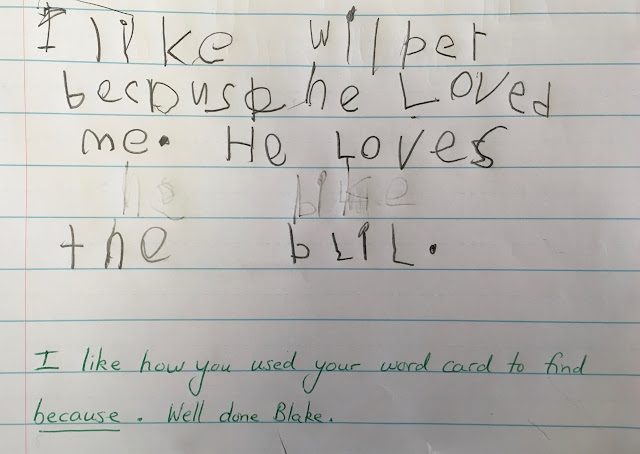 I like wilber
because he Loved
me. He Loves
he
the bLIL.
I like how you used your word card to find
because. Well done Blake.